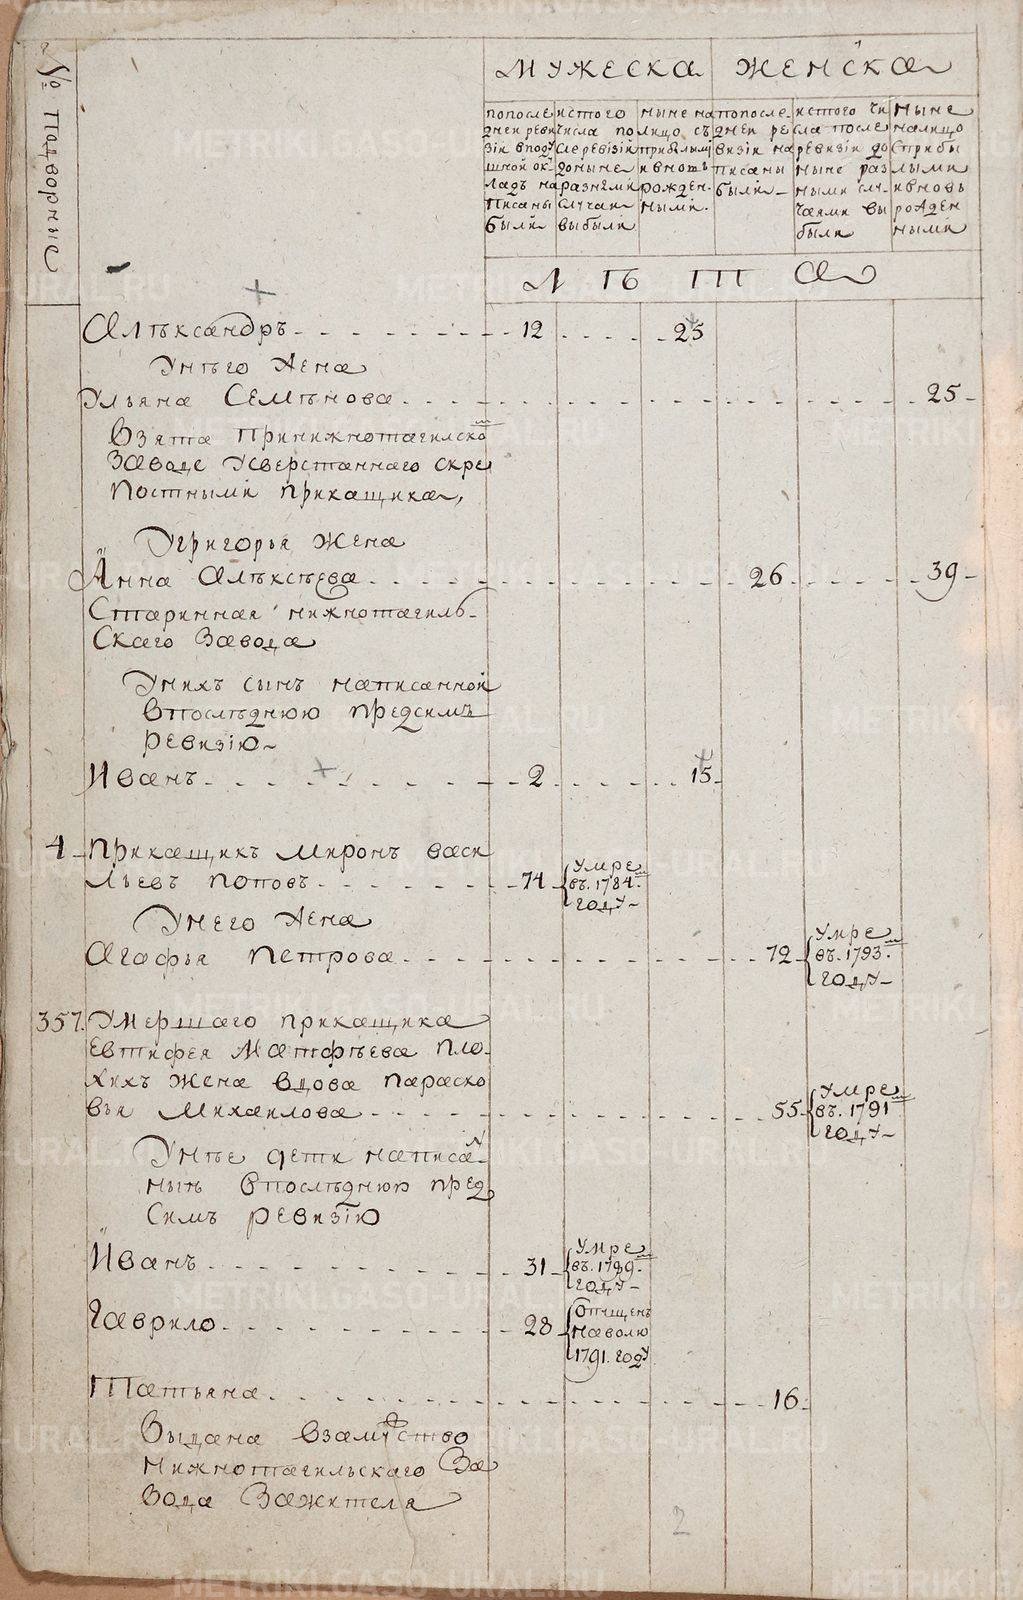 № Подворные
МУЖЕСКА
ЖЕНСКА
попосле
днеи реви
зiи впод
шной ок
ладъ на
писаны
были
истого
числа по
сле ревiзiи
доныне
разнями
случаи
выбыли
ныне на
лицо съ
прибылыми
ивновъ
рожден
ными
попосле
днеи ре
визiи на
писаны
были
истого чи
сла после
ревизiи до
ныне раз
ными слу
чаями вы
были
ныне
налицо
сприбы
лыми
ивновь
рожден
ными
ЛѢТА
Алѣксандръ 12 25
Унѣго жена
Ульяна Семѣнова 25
Взята принижнотагилско
Заводе усверстаннаго скре
постными прикащика,
Угригорья жена
Анна Алѣксѣева 26 39
Старинная нижнотагиль
Скаго Завода
Унихъ сынъ написанной
впослѣднюю предсимъ
ревизiю
Иванъ 2 15
4 Прикащикъ Миронъ васи
льевъ Поповъ 74 Умре
въ. 1784.
году
Унего жена
Агафья Петрова 72 Умре
въ. 1793.
году
357. Умершаго прикащика
Евтифея Матфѣева пло
хихъ жена вдова параско
вья Михаилова 55 Умре
въ. 1791
году
Унѣе дети написа
ныѣ впослѣднюю пред
симъ ревизiю
Иванъ 31 Умре
въ. 1789.
году
Гаврило 28 Отпущенъ
наволю
1791. году
Татьяна 16
Выдана взамуство
нижнотагильскаго За
вода Зажителя
2
METRIKI.GASO-URAL.RU